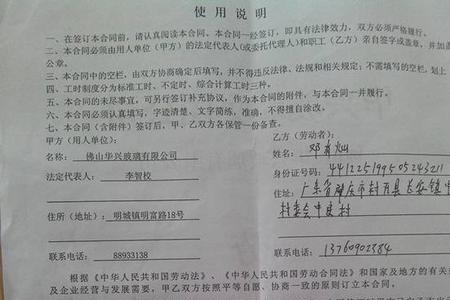 使用说明
一、在签订本合同前，请认真阅读本合同。本合同一经签订，即具有法律效力，双方必须严格履行。
二、本合同必须由用人单位（甲方）的法定代表人(或委托代理人)和职工（乙方）亲自签字或盖章，并加盖
公章。
三、本合同中的空栏，由双方协商确定后填写，并不得违反法律、法规和相关规定；不需填写的空栏，划上
四、工时制度分为标准工时、不定时、综合计算工时三种。
五、本合同的未尽事宜，可另行签订补充协议，作为本合同的附件，与本合同一并履行。
六、本合同必须认真填写，字迹清楚、文字简练、准确，不得擅自涂改。
七、本合同（含附件）签订后，甲、乙双方各保管一份备查。
甲方(用人单位)：
乙方（劳动者）：
名称： 佛山华兴玻璃有限公司
姓名：
法定代表人： 李智校
身份证号码：441225199505243211
住所（地址）：明城镇明富路18号
住址：广东省肇庆市封开县长安镇
村委会中建村
联系电话： 88933138
联系电话：13760902384
根据《中华人民共和国劳动法》、《中华人民共和国劳动合同法》和国家及地方的有关
及企业经营与发展需要，甲乙双方按照平等自愿、协商一致的原则订立本合同。